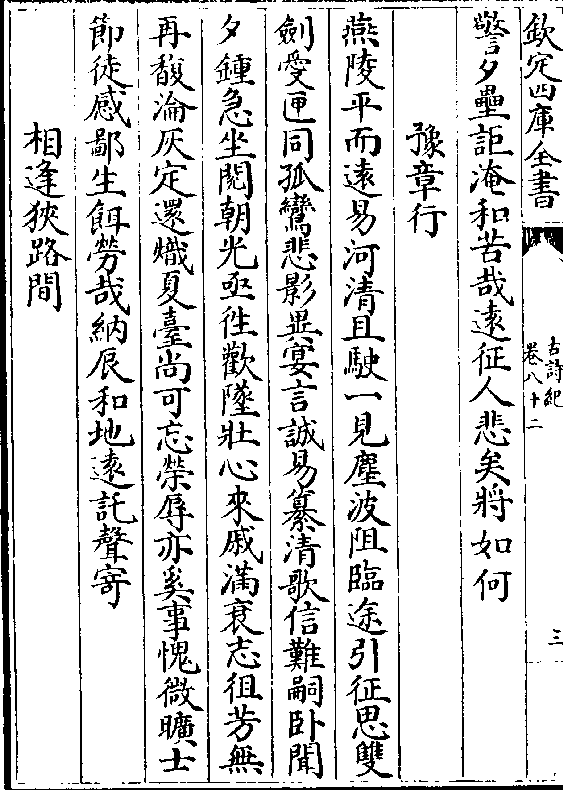 欽定四庫全書
古詩紀
卷八十二
三
警夕壘詎淹和苦哉遠征人悲矣將如何
豫章行
燕陵平而遠易河清且駛一見塵波阻臨途引征思雙
劍愛匣同孤鸞悲影異宴言誠易纂清歌信難嗣卧聞
夕鍾急坐閱朝光亟徃歡墜壯心來戚滿衰志徂芳無
再馥淪灰定還熾夏臺尚可忘榮辱亦奚事愧微曠士
節徒感鄙生餌勞哉納辰和地遠託聲寄
相逢狹路間